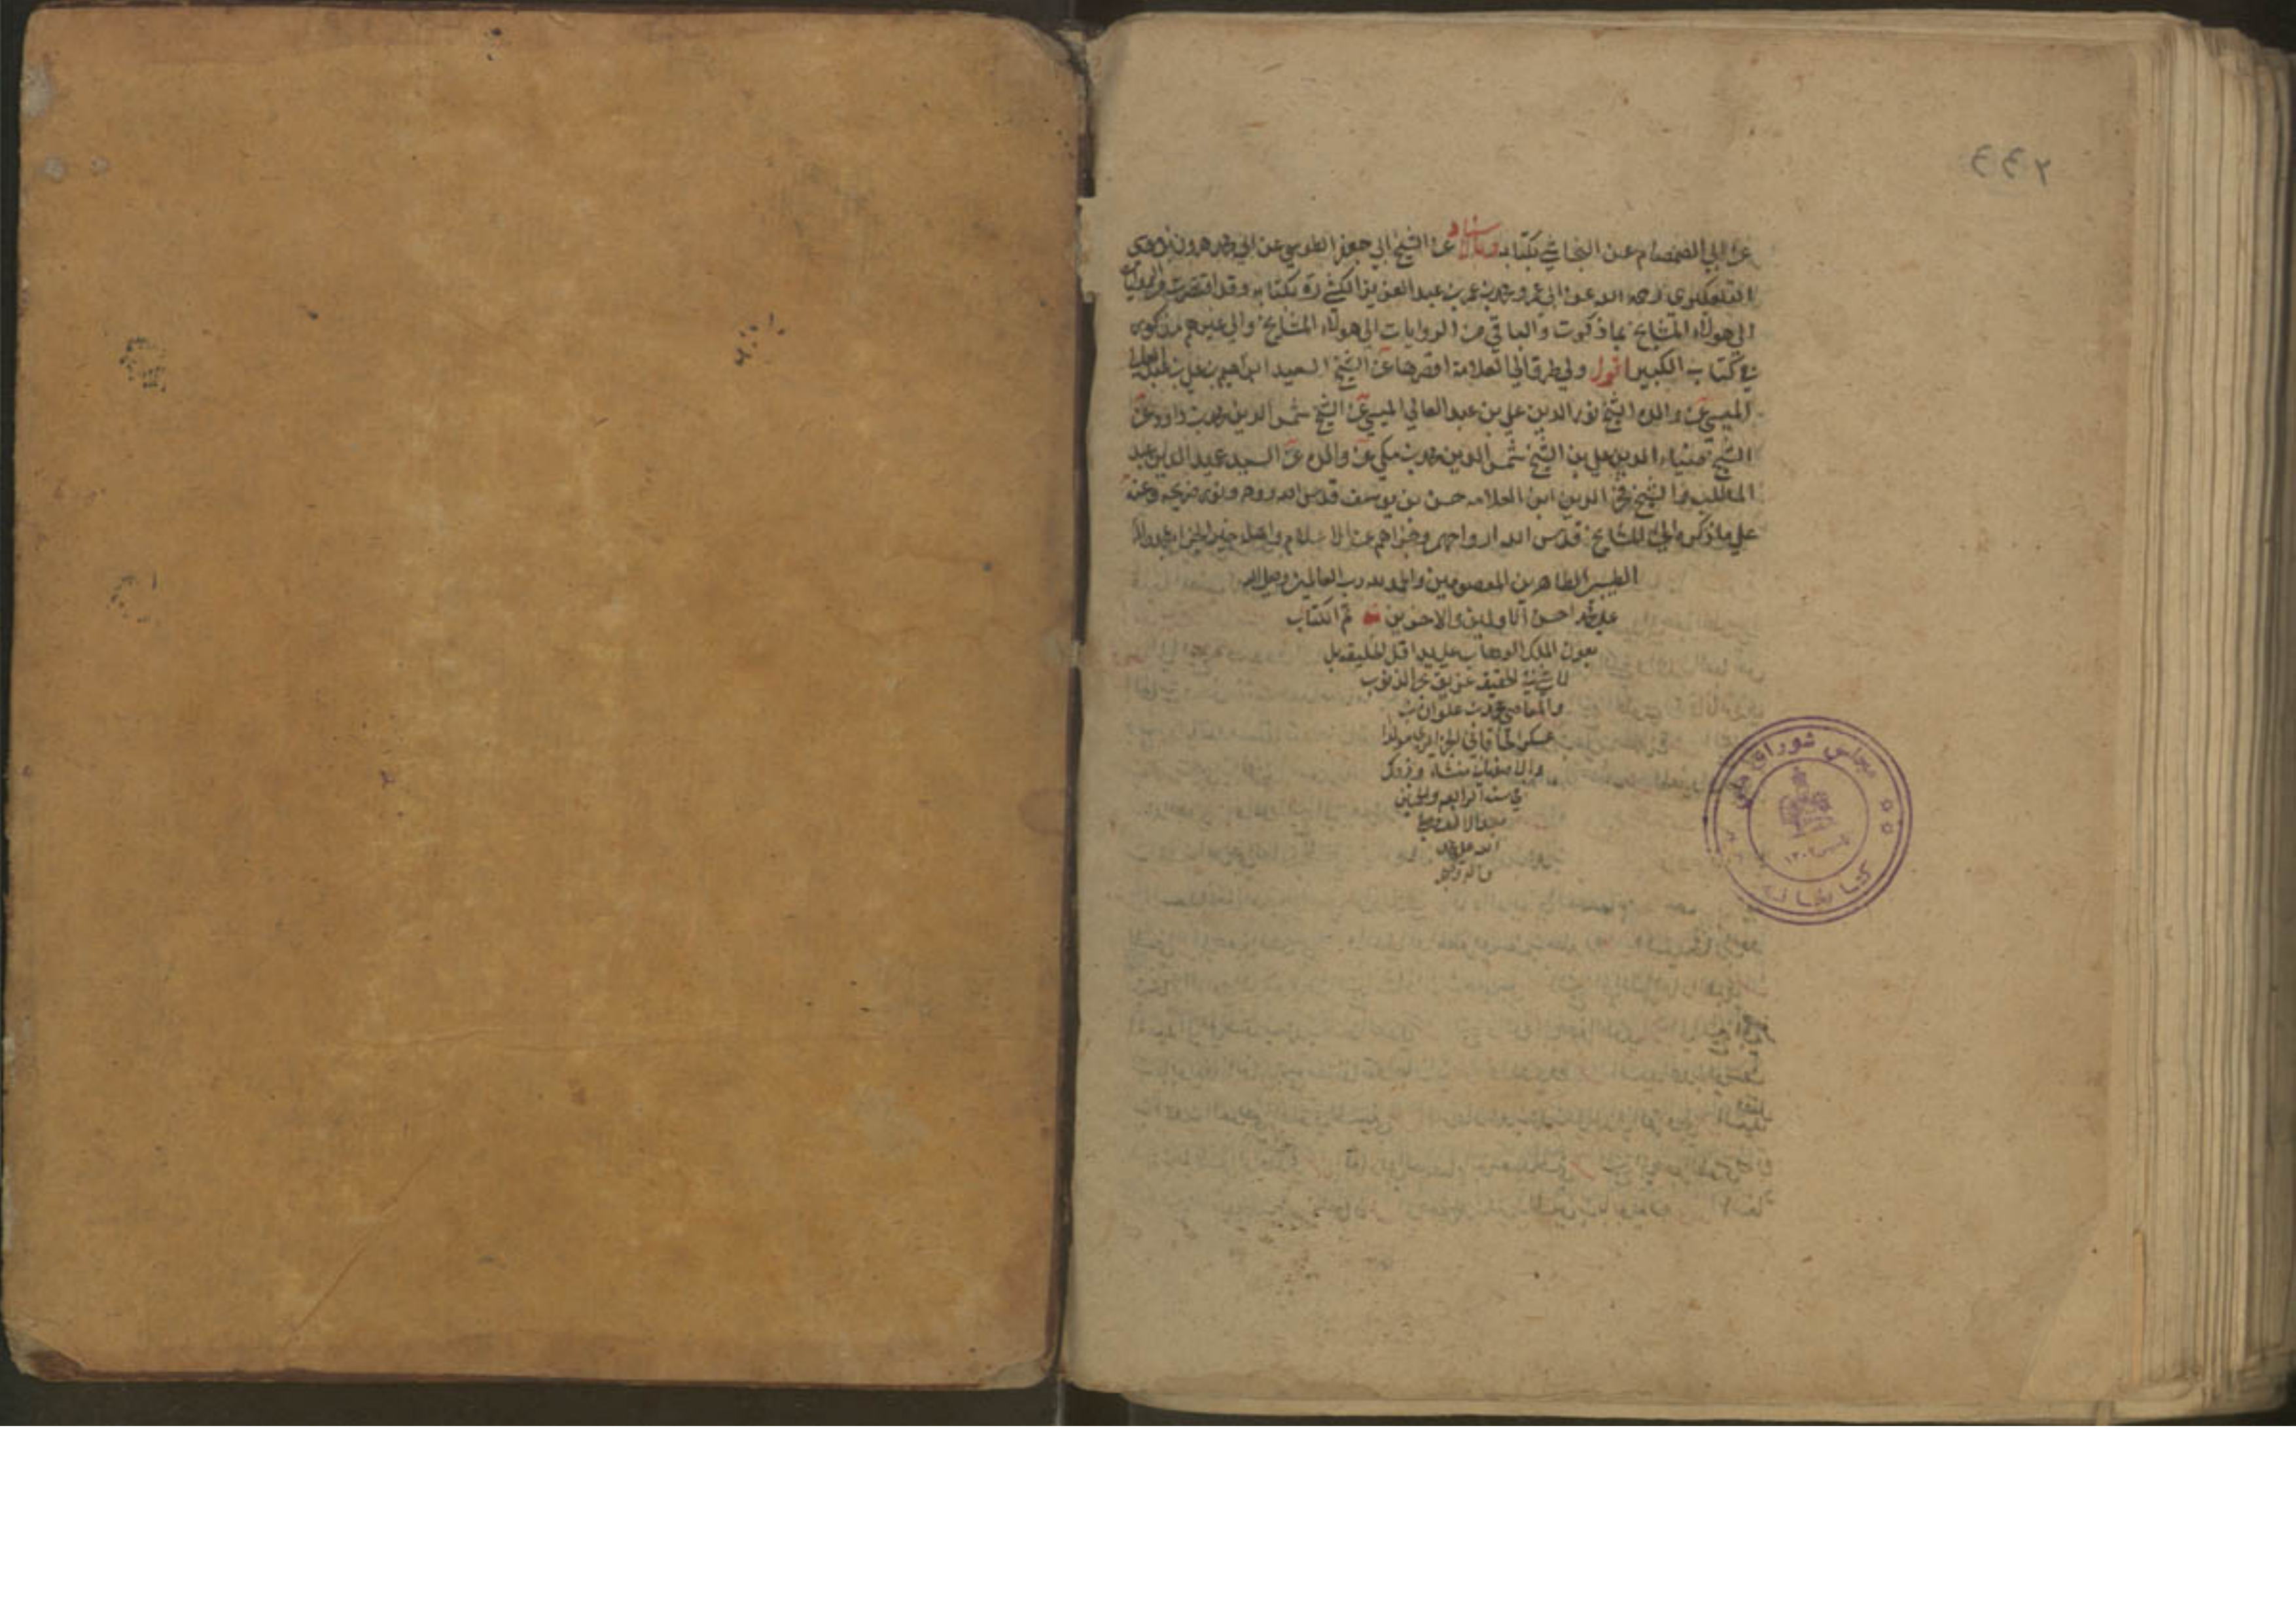 ٢٤٤
عن ابي الصمصام عن النجاشي بكتابه وبالاسناد عن الشيخ ابي جعفر الطوسي عن ابي محمد هرون بن موسى
التلعكبري رحمه الله عن ابي عمرو محمد بن عمر بن عبد العزيز الكشي ره بكتابه وقد اقتصرت من الروايات
الى هولاء المشايخ بما ذكرت والباقي من الروايات الى هولاء المشايخ والى غيرهم مذكور
في كتابنا الكبير اقول ولي طرق الى العلامة اقصرها عن الشيخ السعيد ابراهيم بن علي بن عبد العالي
الميسي عن والده الشيخ نور الدين علي بن عبد العالي الميسي عن الشيخ شمس الدين محمد بن داود عن
الشيخ ضياء الدين علي بن الشيخ شمس الدين محمد بن مكي عن والده عن السيد عميد الدين عبد
المطلب والشيخ فخر الدين ابن العلامه حسن بن يوسف قدس الله روحه ونور ضريحه وعنه
على ما ذكره الى المشايخ قدس الله ارواحهم وجزاهم عن الاسلام واهله خير الجزاء بمحمد وآله
الطيبين الطاهرين المعصومين والحمد لله رب العالمين وصلى الله
على محمد احسن الاولين والاخرين تم الكتاب
بعون الملك الوهاب على يد اقل الخليقه بل
لا شيء في الحقيقه غريق بحر الذنوب
والمعاصي محمد بن علوان بن
عسكر الجزايري مولدا
منشاء
في سنة الرابعه والثمانين
بعد الالف
الله على محمد
وآله
مجلس شوراى ملى
كتابخانه
تاسيس ١٣٠٢